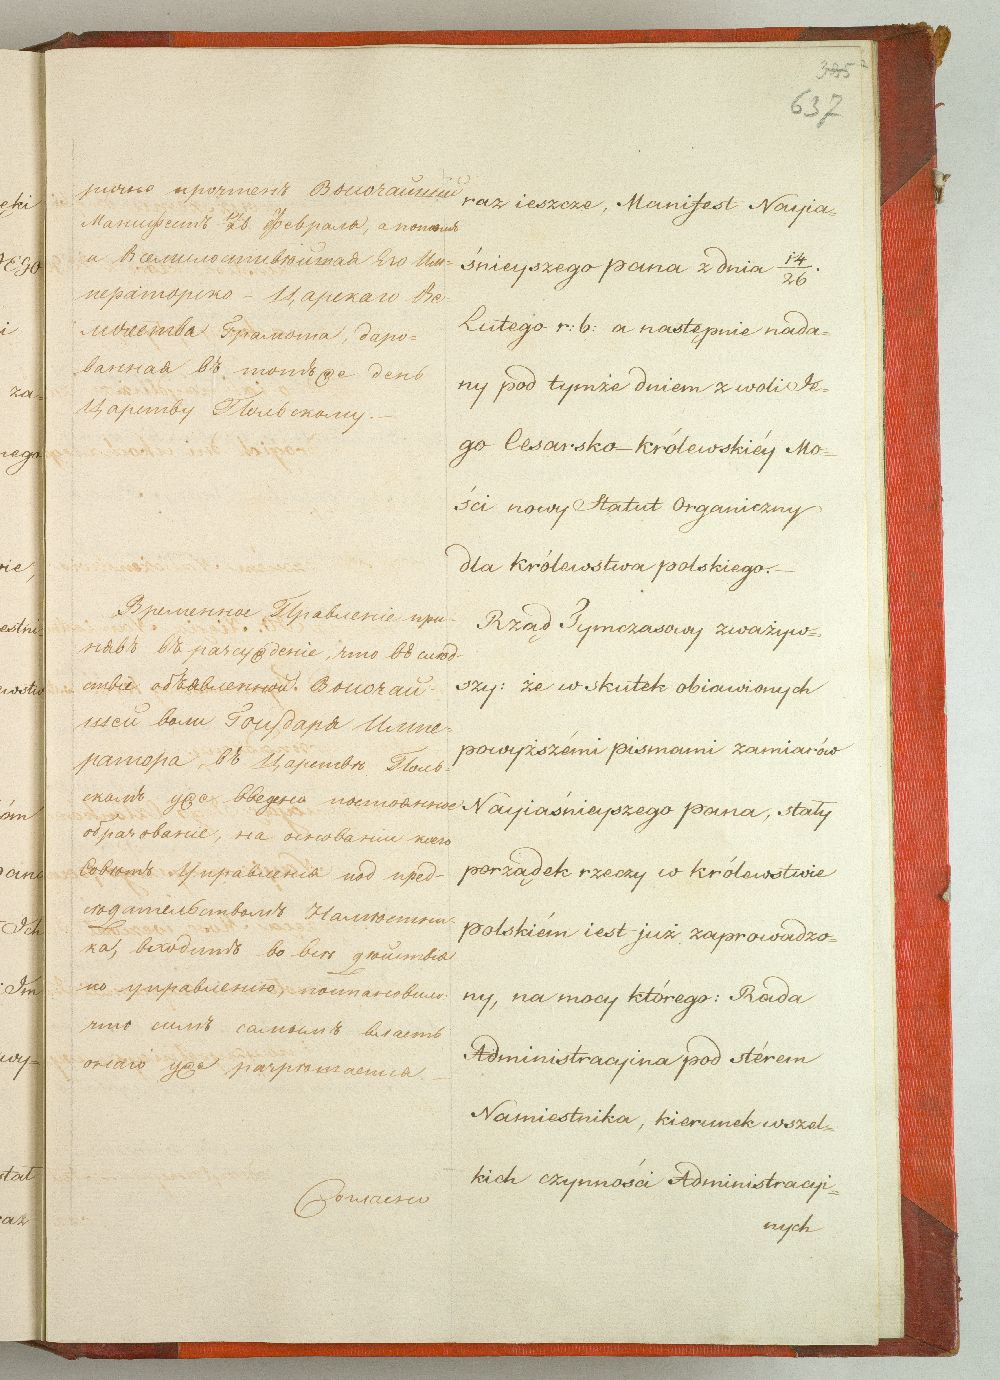 385
637
рично прочтенъ Высочайшій
Манифестъ 14/26 Февраля, а потомъ
и Всемилостивѣйшая Его Им-
ператорско-Царскаго Ве-
личества Грамота, даро-
ванная въ тотъ же день
Царству Польскому.—
Временное Правленіе при-
нявъ въ разсужденіе, что въ слѣд-
ствіе объявленной Высочай-
шей воли Государя Импе-
ратора, въ Царствѣ Поль-
скомъ уже введено постоянное
образованіе, на основаніи коего
Совѣтъ Управленія под пред-
сѣдательствомъ Намѣстни-
ка, входитъ во всѣ дѣйствія
по управленію, постановило:
что симъ самымъ власть
онаго уже разрѣшается—
raz ieszcze, Manifest Nayia-
śnieyszego pana z dnia 14/26.
Lutego r: b: a następnie nada-
ny pod tymże dniem z woli Je-
go Cesarsko-Królewskiéy Mo-
ści nowy Statut Organiczny
dla Królewstwa polskiego.—
Rząd Tymczasowy zważyw-
szy: że w skutek obiawionych
powyższémi pismami zamiarów
Nayiaśnieyszego pana, stały
porządek rzeczy w królewstwie
polskiém iest już zaprowadzo-
ny, na mocy którego: Rada
Administracyjna pod stérem
Namiestnika, kierunek wszel-
kich czynności Administracyj-
nych
ęki
ego
i
za-
nego
wie,
estni-
ewstw
óm
pana
Ich
Im
wy-
stat
raz